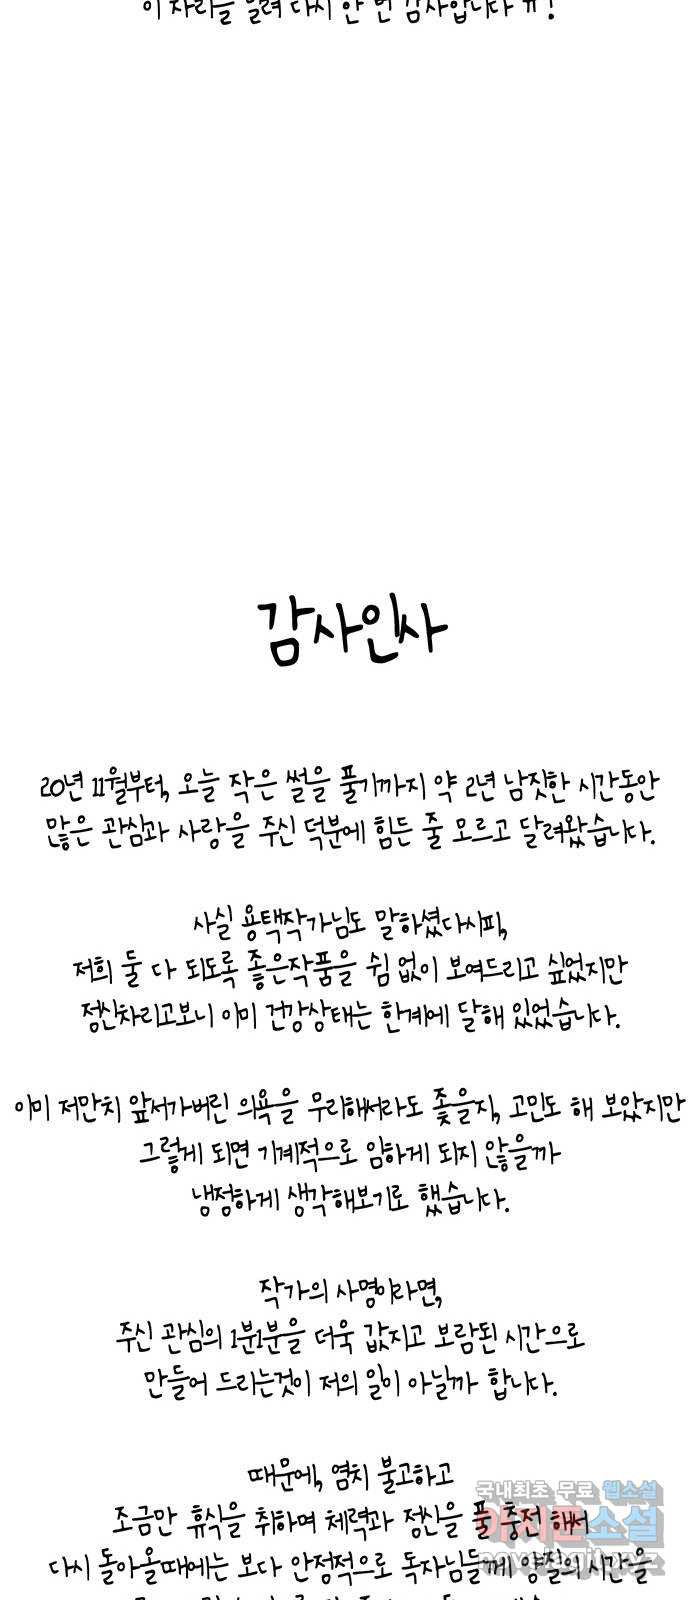 이 자리를 빌려 다시 한 번 감사합니다 ㅠ!
감사인사
20년 11월부터, 오늘 작은 썰을 풀기까지 약 2년 남짓한 시간동안
많은 관심과 사랑을 주신 덕분에 힘든 줄 모르고 달려왔습니다.
사실 용택작가님도 말하셨다시피,
저희 둘 다 되도록 좋은작품을 쉼 없이 보여드리고 싶었지만
정신차리고보니 이미 건강상태는 한계에 달해 있었습니다.
이미 저만치 앞서가버린 의욕을 무리해서라도 좇을지, 고민도 해 보았지만
그렇게 되면 기계적으로 임하게 되지 않을까
냉정하게 생각해보기로 했습니다.
작가의 사명이라면,
주신 관심의 1분1분을 더욱 값지고 보람된 시간으로
만들어 드리는것이 저의 일이 아닐까 합니다.
때문에, 염치 불고하고
국내최초 무료 웹소설
조금만 휴식을 취하며 체력과 정신을 풀 충전 해서
다시 돌아올때에는 보다 안정적으로 독자님들께 양질의 시간을